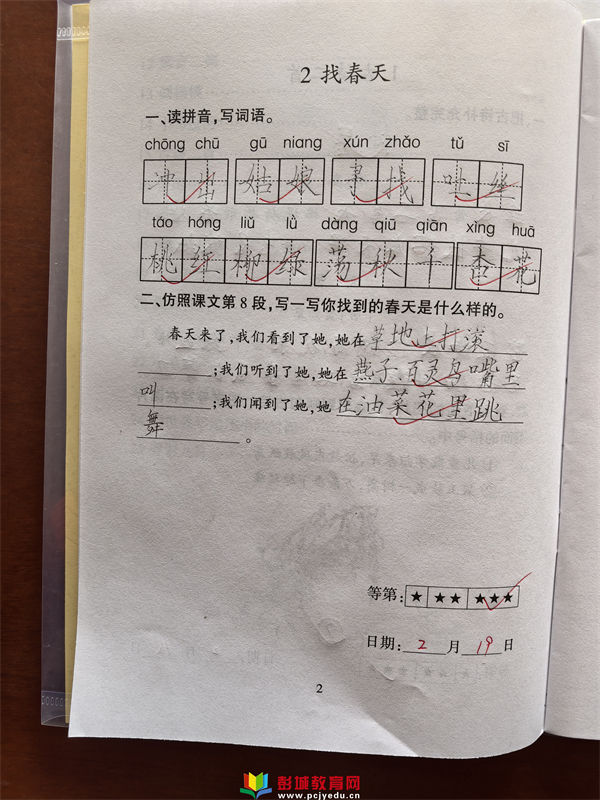 2 找春天
一、读拼音,写词语。
chōng chū gū niang xún zhǎo tǔ sī
冲出 姑娘 寻找 吐丝
táo hóng liǔ lǜ dàng qiū qiān xìng huā
桃红柳绿 荡秋千 杏花
二、仿照课文第 8 段,写一写你找到的春天是什么样的。
春天来了,我们看到了她,她在草地上打滚
;我们听到了她,她在燕子、百灵鸟嘴里
叫;我们闻到了她,她在油菜花里跳
舞。
等第: ★ ★★ ★★★
日期: 2 月 19 日
2
彭城教育网
www.pcjyedu.cn